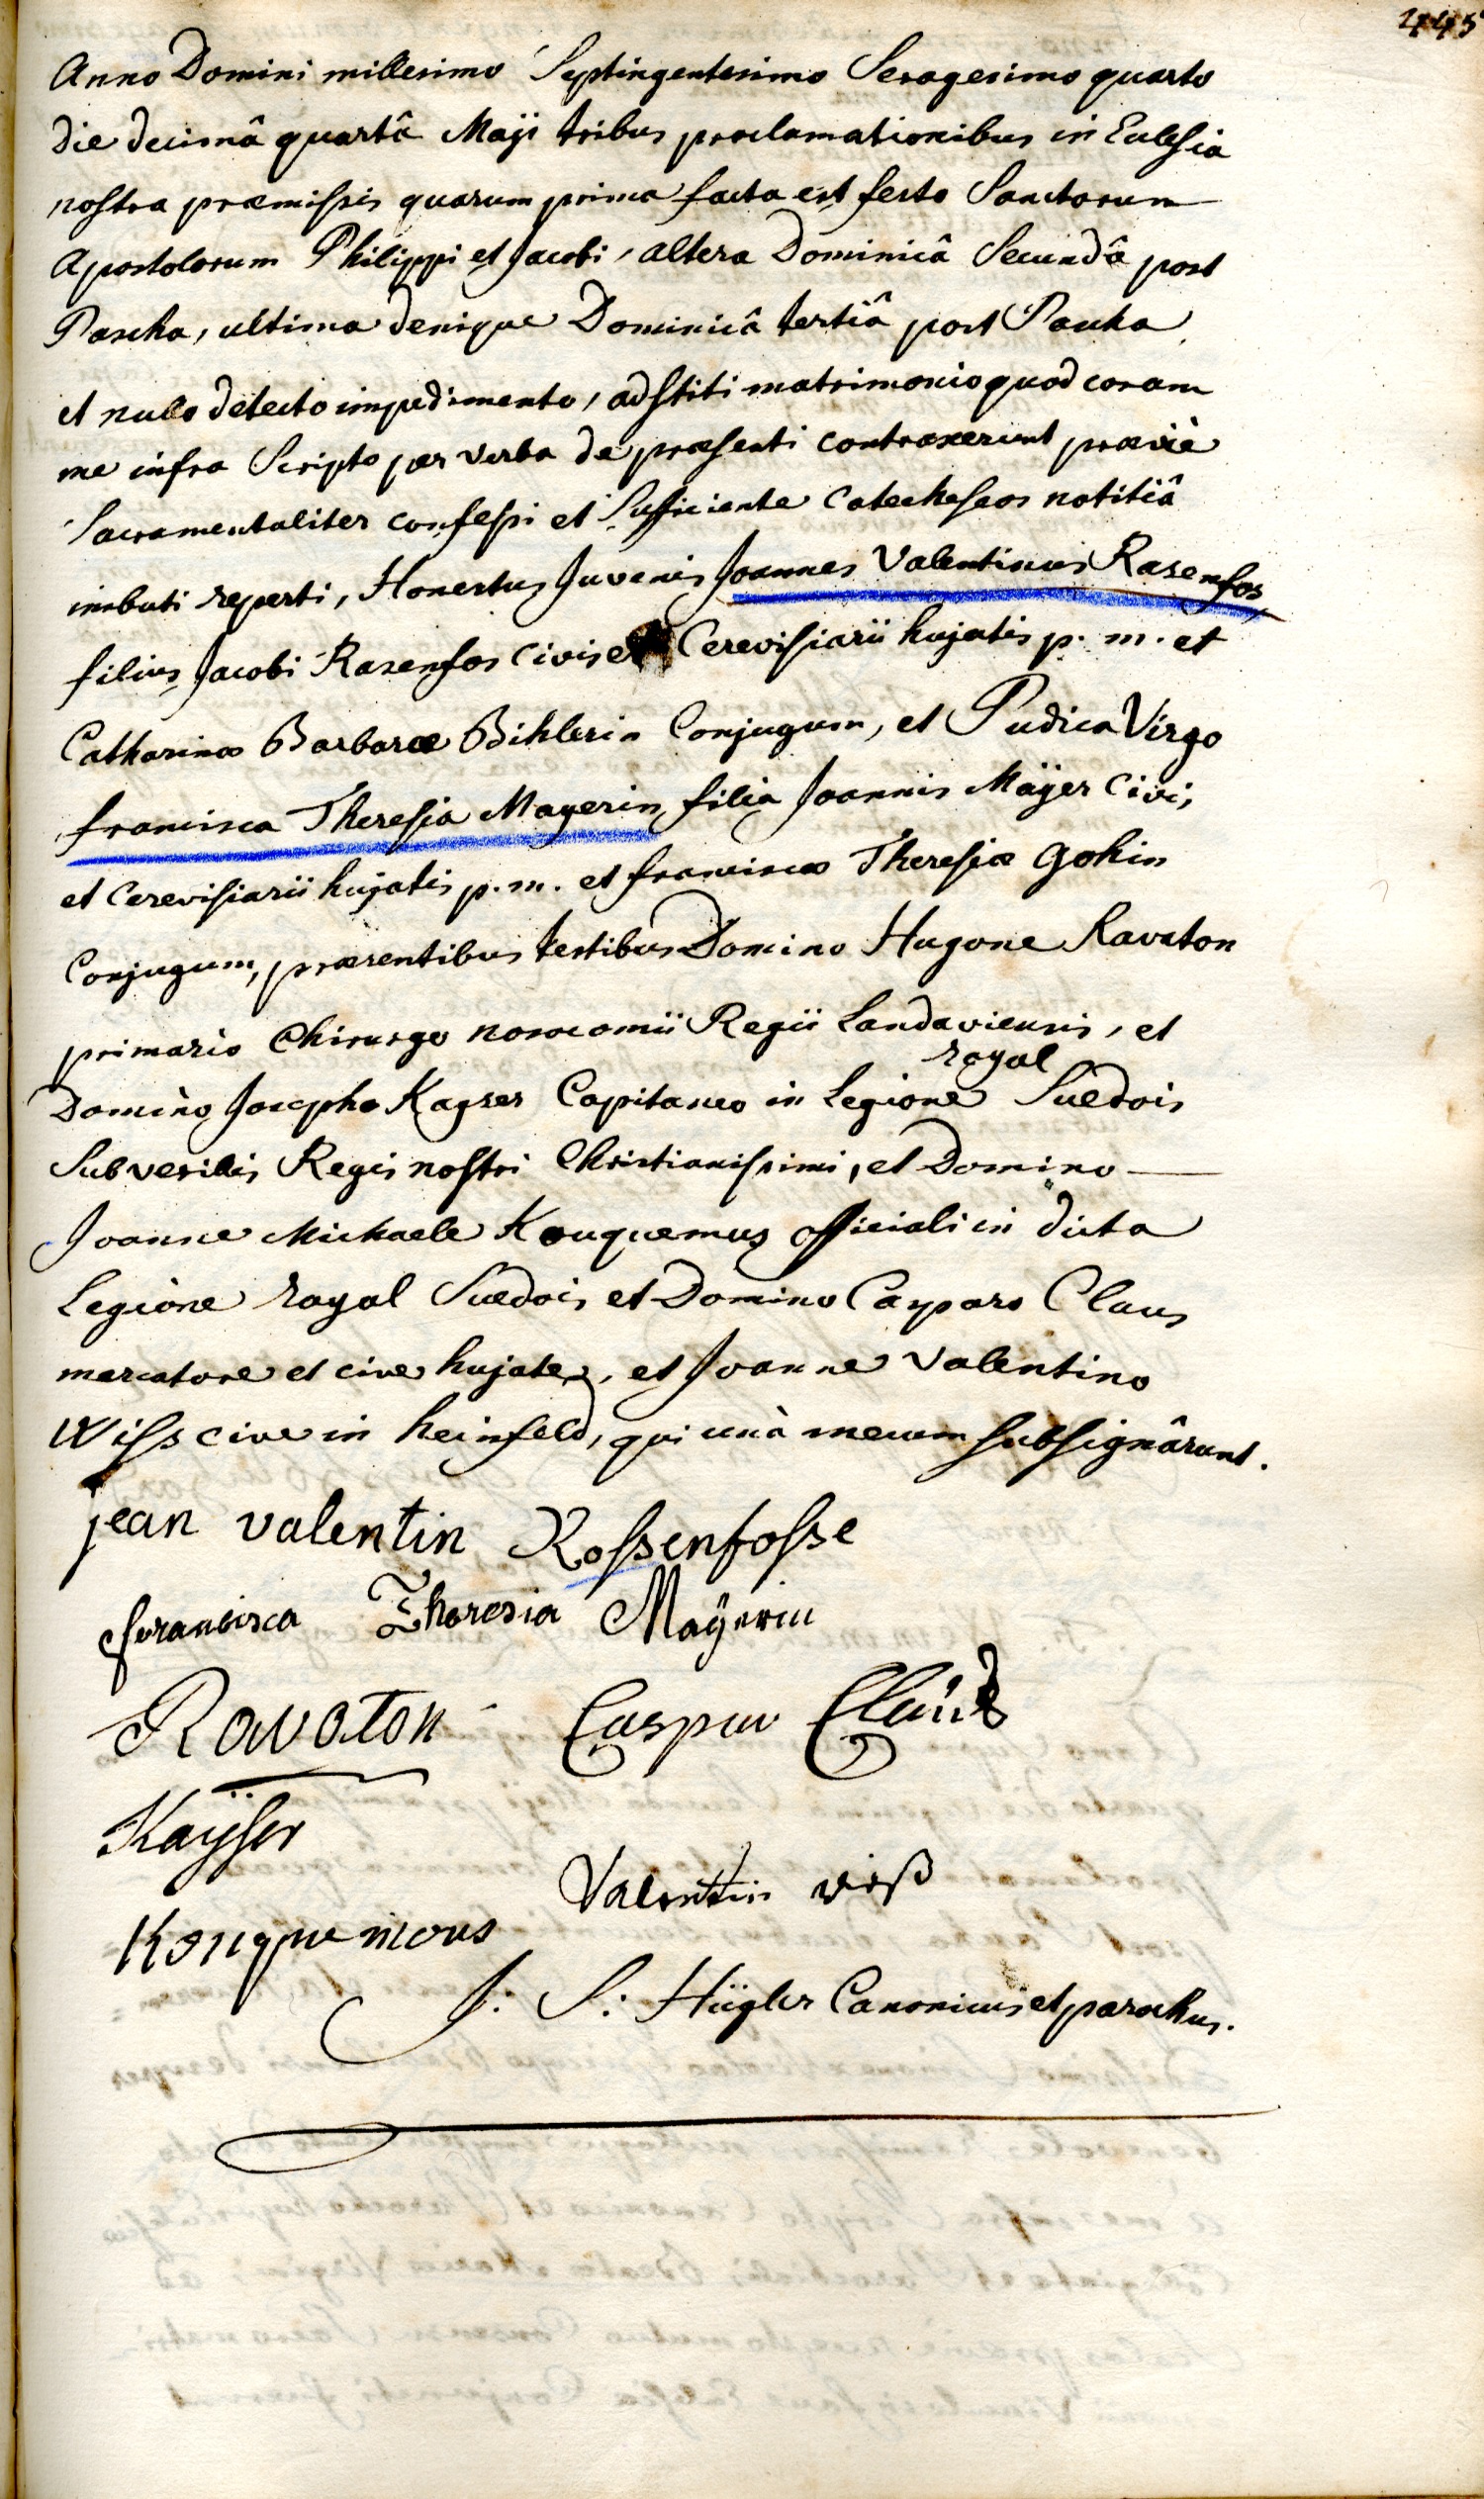 445
Anno Domini millesimo Septingentesimo Sexagesimo quarto
die decimâ quartâ Maji tribus proclamationibus in Ecclesia
nostra præmissis quarum prima facta est festo Sanctorum
Apostolorum Philippi et Jacobi, altera Dominicâ Secundâ post
Pascha, ultima denique Dominicâ tertiâ post Pascha,
et nullo detecto impedimento, adstiti matrimonio quod coram
me infra Scripto per verba de præsenti contraxerunt præviè
Sacramentaliter confessi et Sufficiente Catecheseos notitiâ
imbuti reperti, Honestus Juvenis Joannes Valentinus Rasenfos
filius Jacobi Rasenfos civis et Cerevisiarii hujatis p. m. et
Catharinæ Barbaræ Bihlerin Conjugum, et Pudica Virgo
francisca Theresia Mayerin filia Joannis Mäÿer Civis
et Cerevisiarii hujatis p. m. et franciscæ Theresiæ Gohin
Conjugum, præsentibus testibus Domino Hugone Ravaton
primario Chirurgo nosocomii Regii Landaviensis, et
Domino Josepho Kayser Capitaneo in Legione royal Suedois
Sub vexillis Regis nostri Christianissimi, et Domino
Joanne Michaele Kouquemus officiali in dicta
Legione royal Suedois et Domino Casparo Claus
mercatore et cive hujate, et Joanne Valentino
Wiss cive in heinfeld, qui unà mecum subsignârunt.
jean valentin Rossenfosse
francisca Theresia Maÿerin
Ravaton Caspar Claus
Kaÿser
Valentin wiß
Kouquemous
J: S: Hügler Canonicus et parochus.